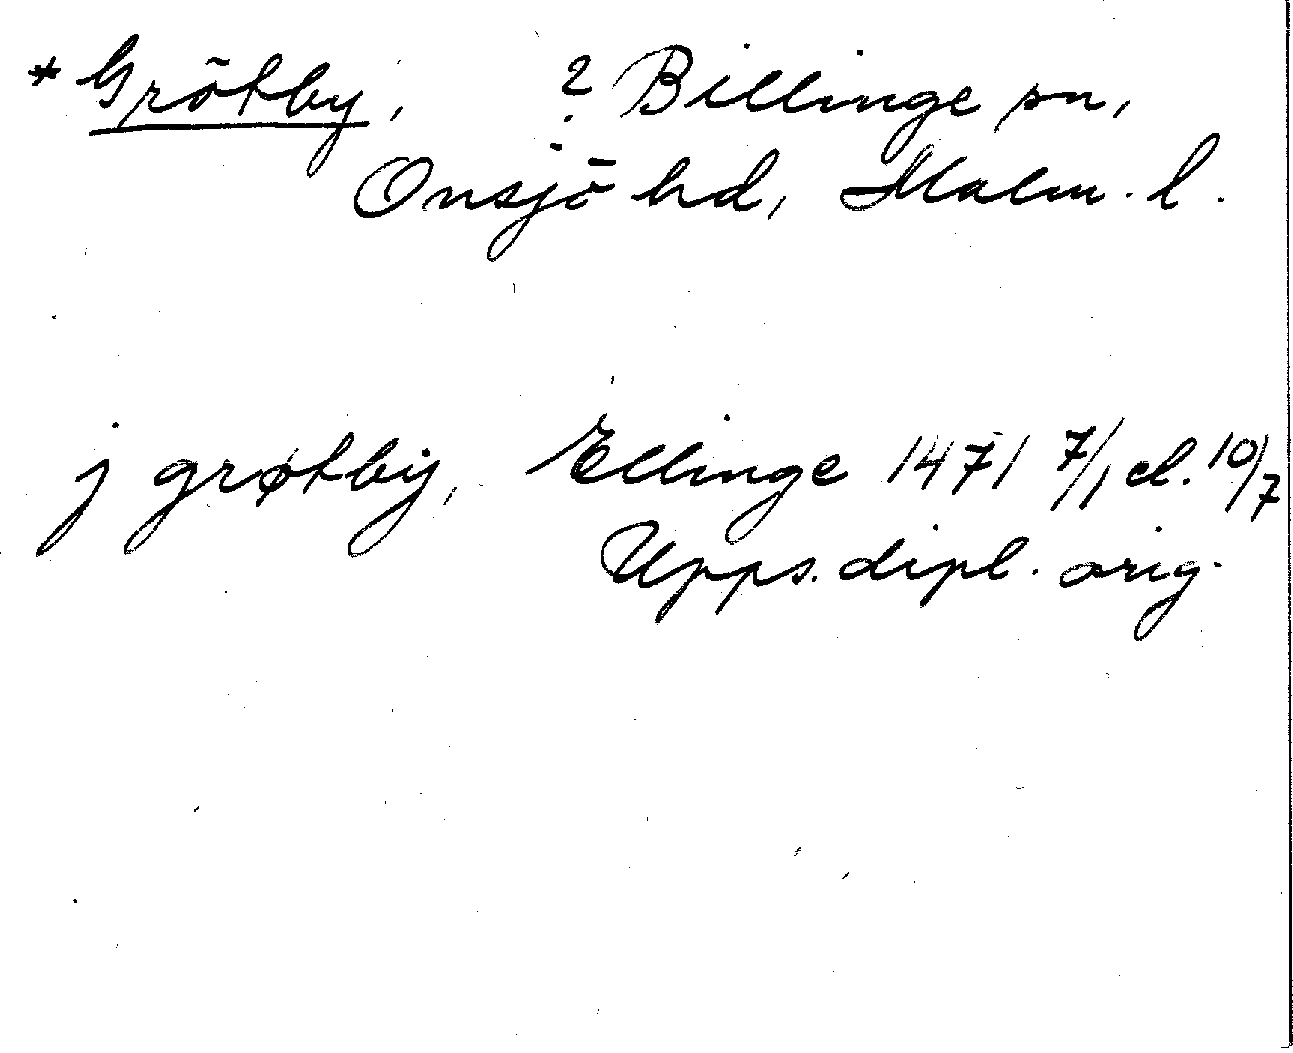 * Grötby, ? Billinge sn,
Onsjö hd, Malm. l.
j grøtby, Ellinge 1471 7/1 el. 10/7
Upps. dipl. orig.